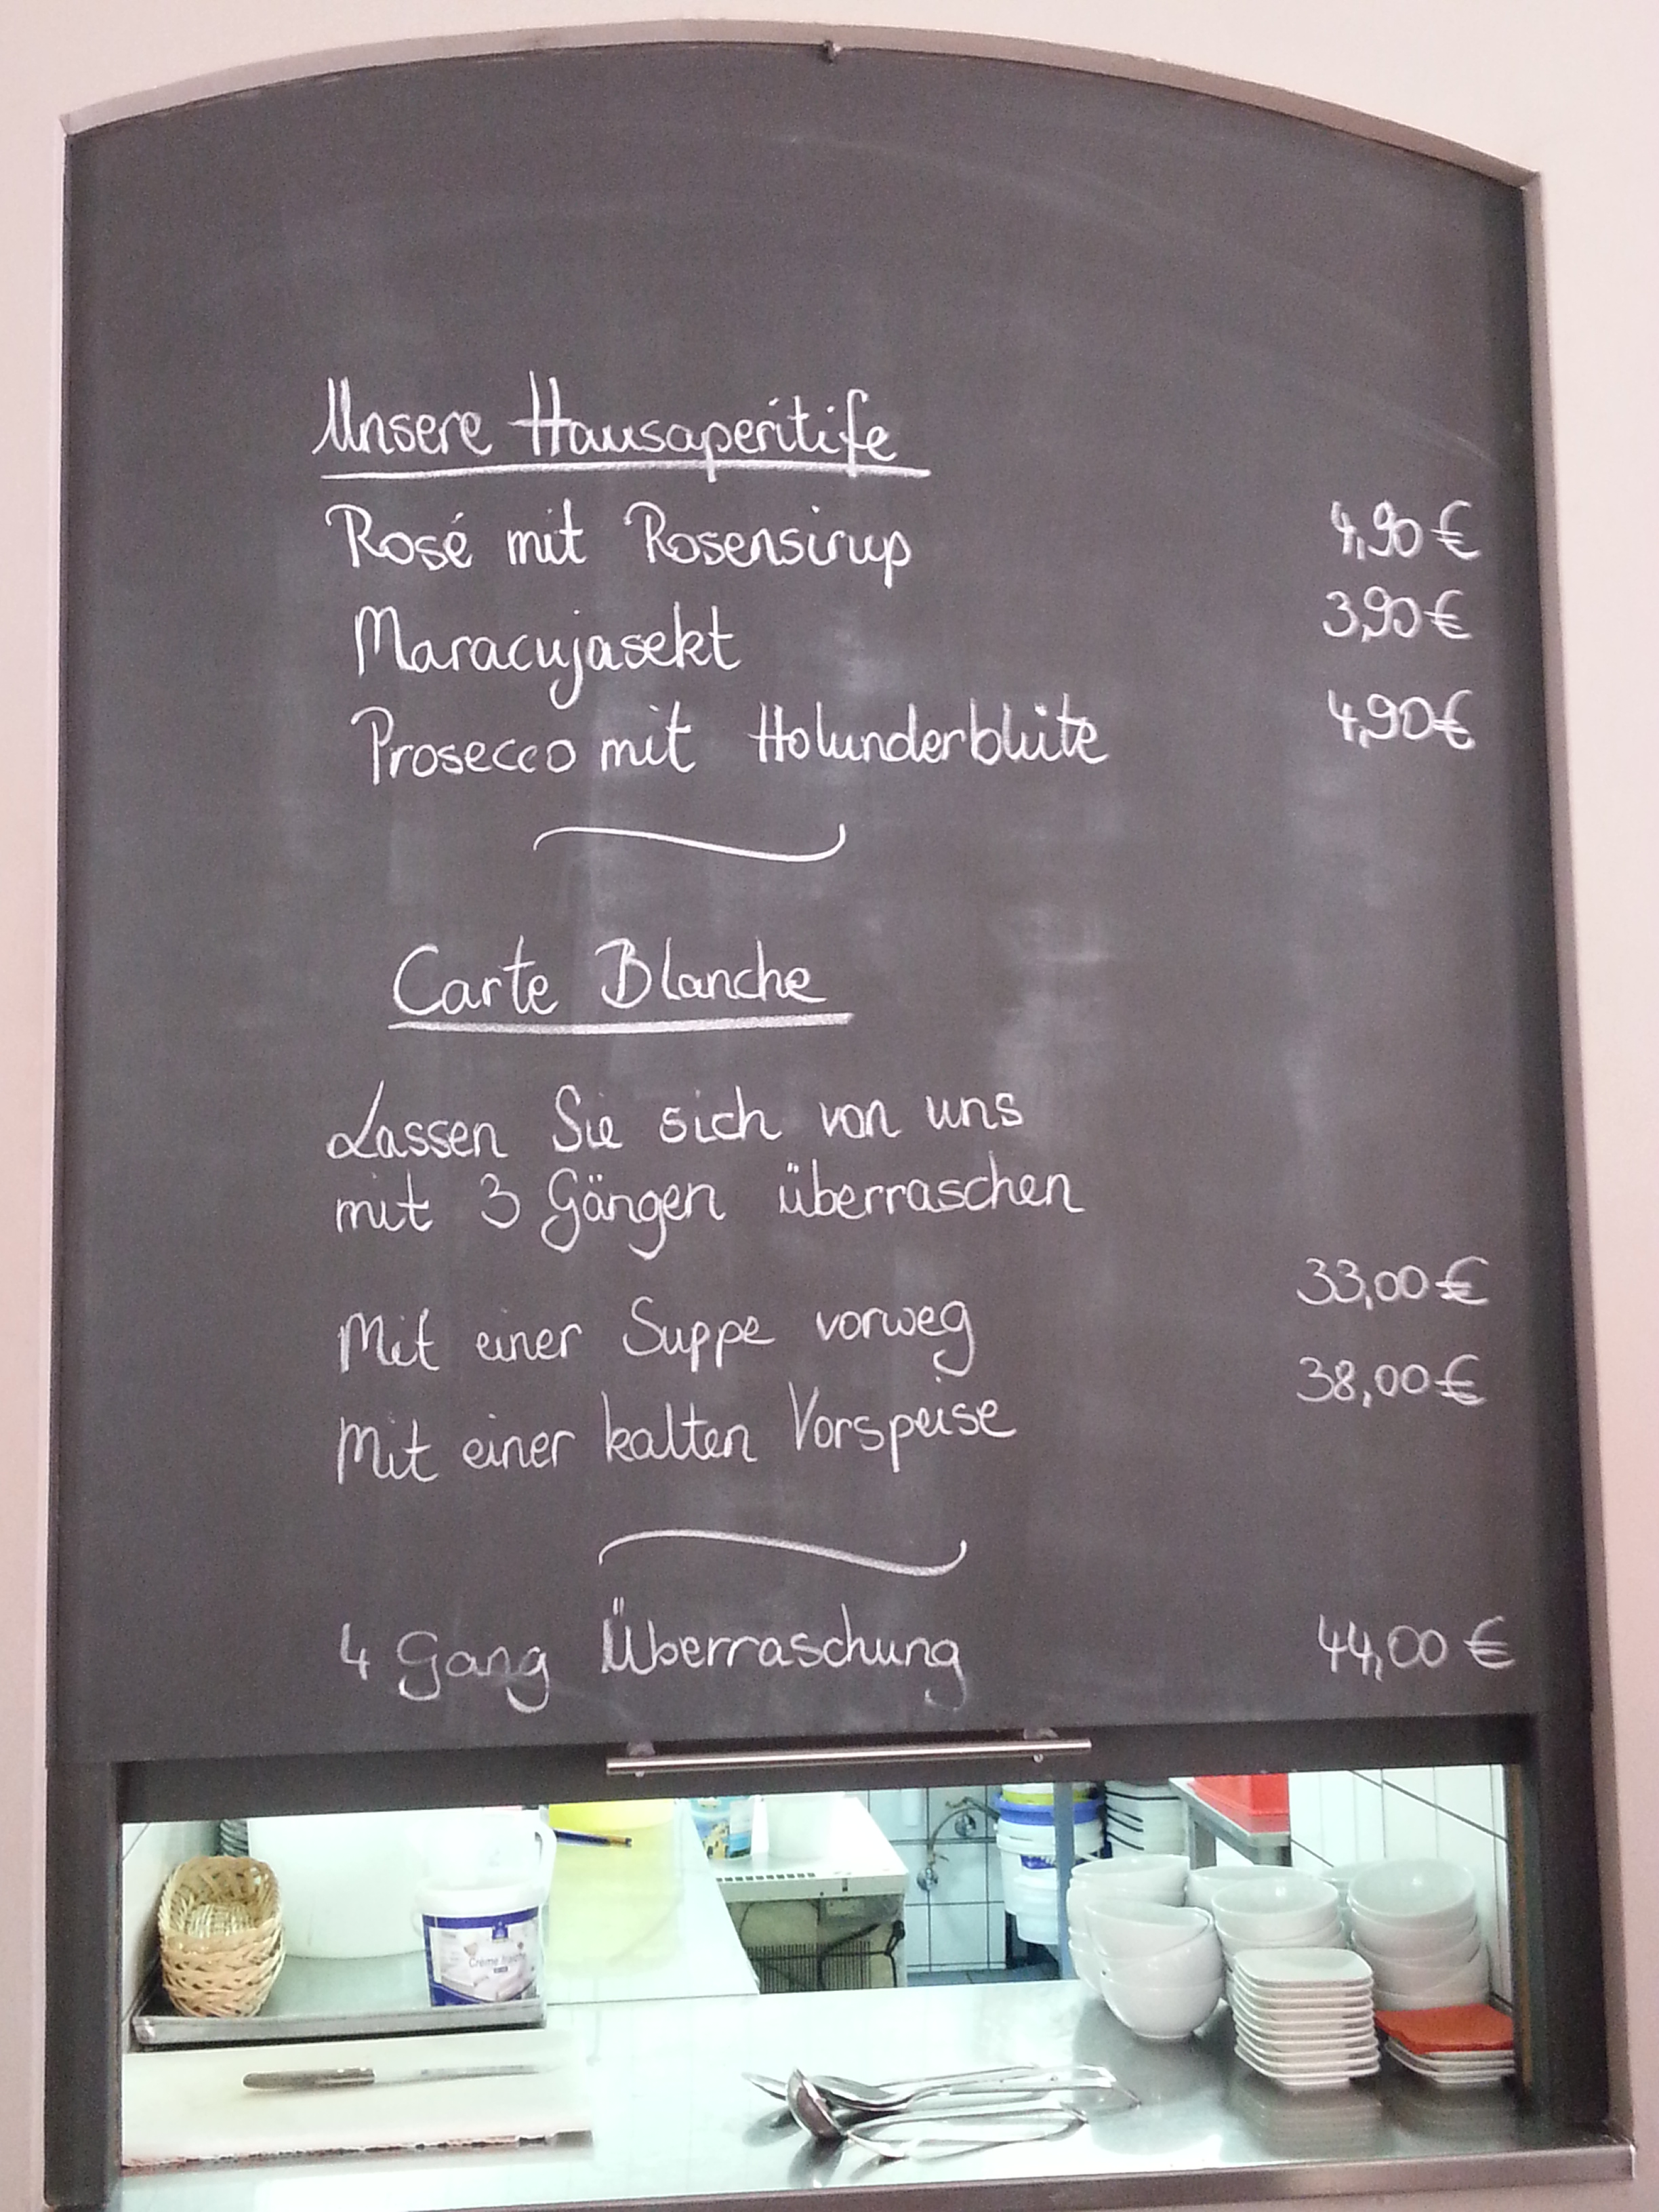 Unsere Hausaperitife
Rosé mit Rosensirup 4,90 €
Maracujasekt 3,90 €
Prosecco mit Holunderblüte 4,90 €
Carte Blanche
Lassen Sie sich von uns
mit 3 Gängen überraschen
Mit einer Suppe vorweg 33,00 €
Mit einer kalten Vorspeise 38,00 €
4 Gang Überraschung 44,00 €
Crème fraîche